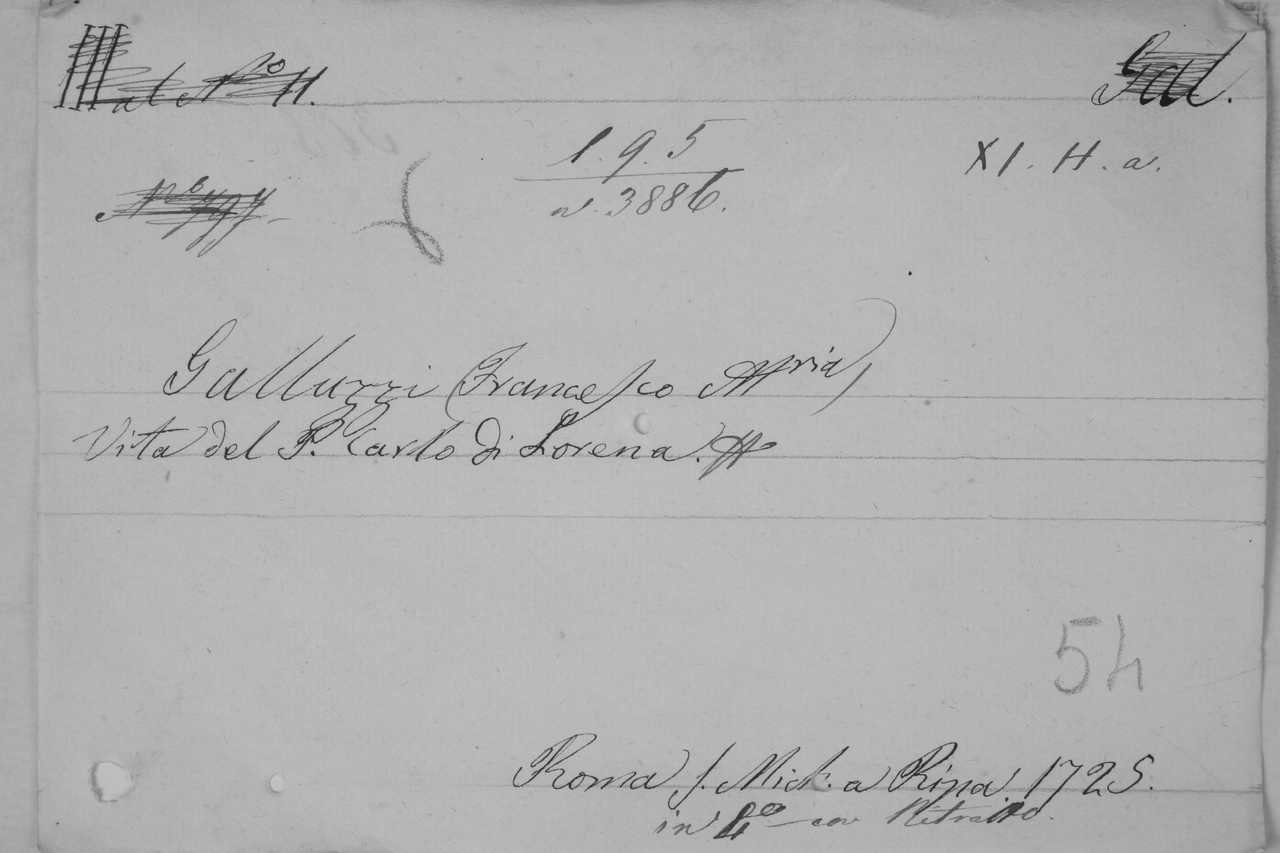 al N.º 11. Gal.
1. 9. 5 XI. H. a.
n. 3886.
Galluzzi (Francesco Mria)
Vita del P. Carlo di Lorena.
54
Roma S. Mich. a Ripa 1725.
in 4º con Ritratto.